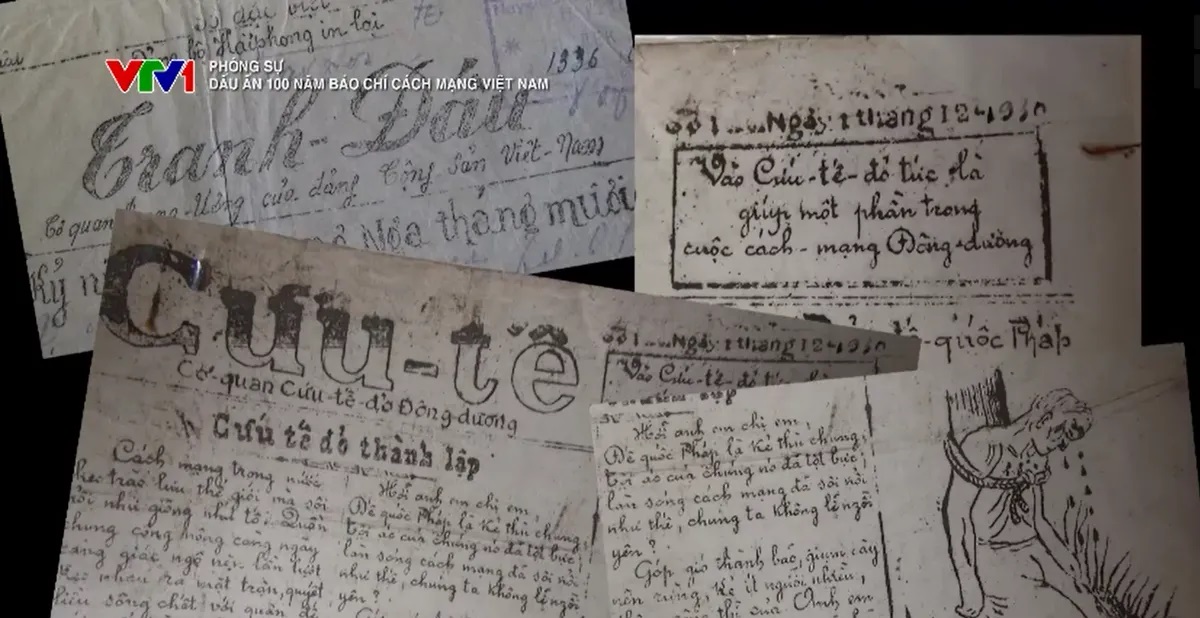 VTV1
PHÓNG SỰ
DẤU ẤN 100 NĂM BÁO CHÍ CÁCH MẠNG VIỆT NAM
bộ Hải phong in lại
1336
Tranh-Đấu
Cơ quan Trung-Ương của đảng Cộng Sản Việt-Nam
Nga tháng mười
Kỷ
Số 1 Ngày 1 tháng 12-1930
Vào Cứu-tế-đỏ tức là
giúp một phần trong
cuộc cách-mạng Đông-dường
quốc Pháp
Cứu-tế
Cơ-quan Cứu-tế-đỏ Đông-dương
Cứu tế đỏ thành lập
Cách mạng trong nước
theo trào lưu thế giới mà sôi
nổi như giông như tố. Quần
chung công nông càng ngày
càng giác ngộ nên lần lượt
kéo nhau ra mặt trận, quyết
liều sống chết với quân đế
Hỡi anh em chị em
Đế quốc Pháp là kẻ thù chung,
tội ác của chúng nó đã tột bực
làn sóng cách mạng đã sôi nổi
như thế, chúng ta không lẽ ngồi
yên?
Số 1 Ngày 1 tháng 12-1930
Vào Cứu-tế-đỏ tức là
Hỡi anh em chị em,
Đế quốc Pháp là kẻ thù chung,
tội ác của chúng nó đã tột bực
làn sóng cách mạng đã sôi nổi
như thế, chúng ta không lẽ ngồi
yên?
Góp gió thành bão, giụm cây
nên rừng, kẻ ít người nhiều,
của Anh em